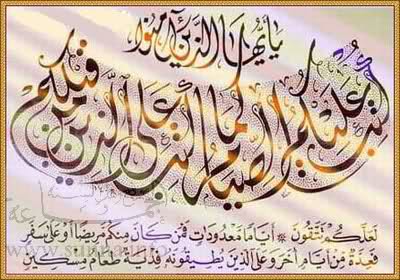 يَا أَيُّهَا الَّذِينَ آمَنُوا
كُتِبَ عَلَيْكُمُ الصِّيَامُ كَمَا كُتِبَ عَلَى الَّذِينَ مِن قَبْلِكُمْ
لَعَلَّكُمْ تَتَّقُونَ أَيَّامًا مَعْدُودَاتٍ فَمَن كَانَ مِنكُم مَرِيضًا أَوْ عَلَى سَفَرٍ
فَعِدَّةٌ مِنْ أَيَّامٍ أُخَرَ وَعَلَى الَّذِينَ يُطِيقُونَهُ فِدْيَةٌ طَعَامُ مِسْكِينٍ